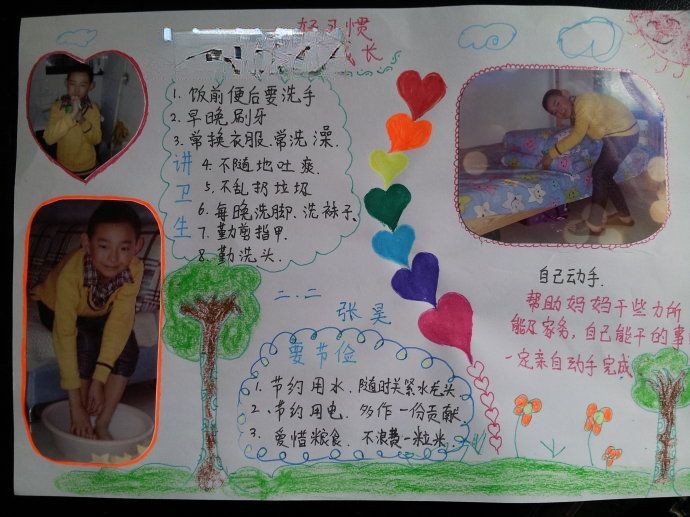 好习惯
成长
讲卫生
1. 饭前便后要洗手
2. 早晚刷牙
3. 常换衣服.常洗澡.
4. 不随地吐痰
5. 不乱扔垃圾
6. 每晚洗脚.洗袜子.
7. 勤剪指甲.
8. 勤洗头.
二.二
张昊
要节俭
1. 节约用水.随时关紧水龙头.
2. 节约用电.多作一份贡献
3. 爱惜粮食.不浪费一粒米.
自己动手.
帮助妈妈干些力所
能及家务,自己能干的事
一定亲自动手完成